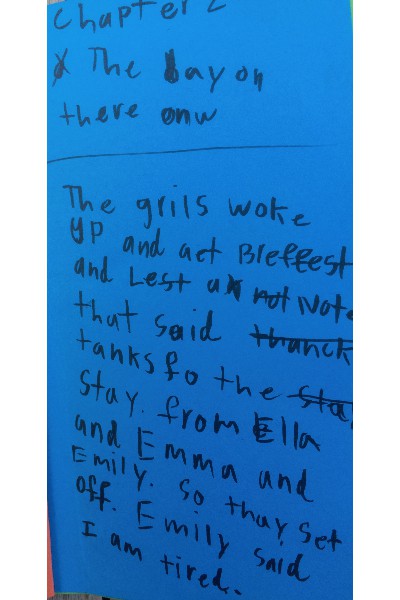 Chapter 2
The Day on
there onw
The grils woke
up and aet Breffest
and Lest a not Note
that said thanck
tanks fo the sta
stay. from Ella
and Emma and
Emily. so thay set
off. Emily said
I am tired.